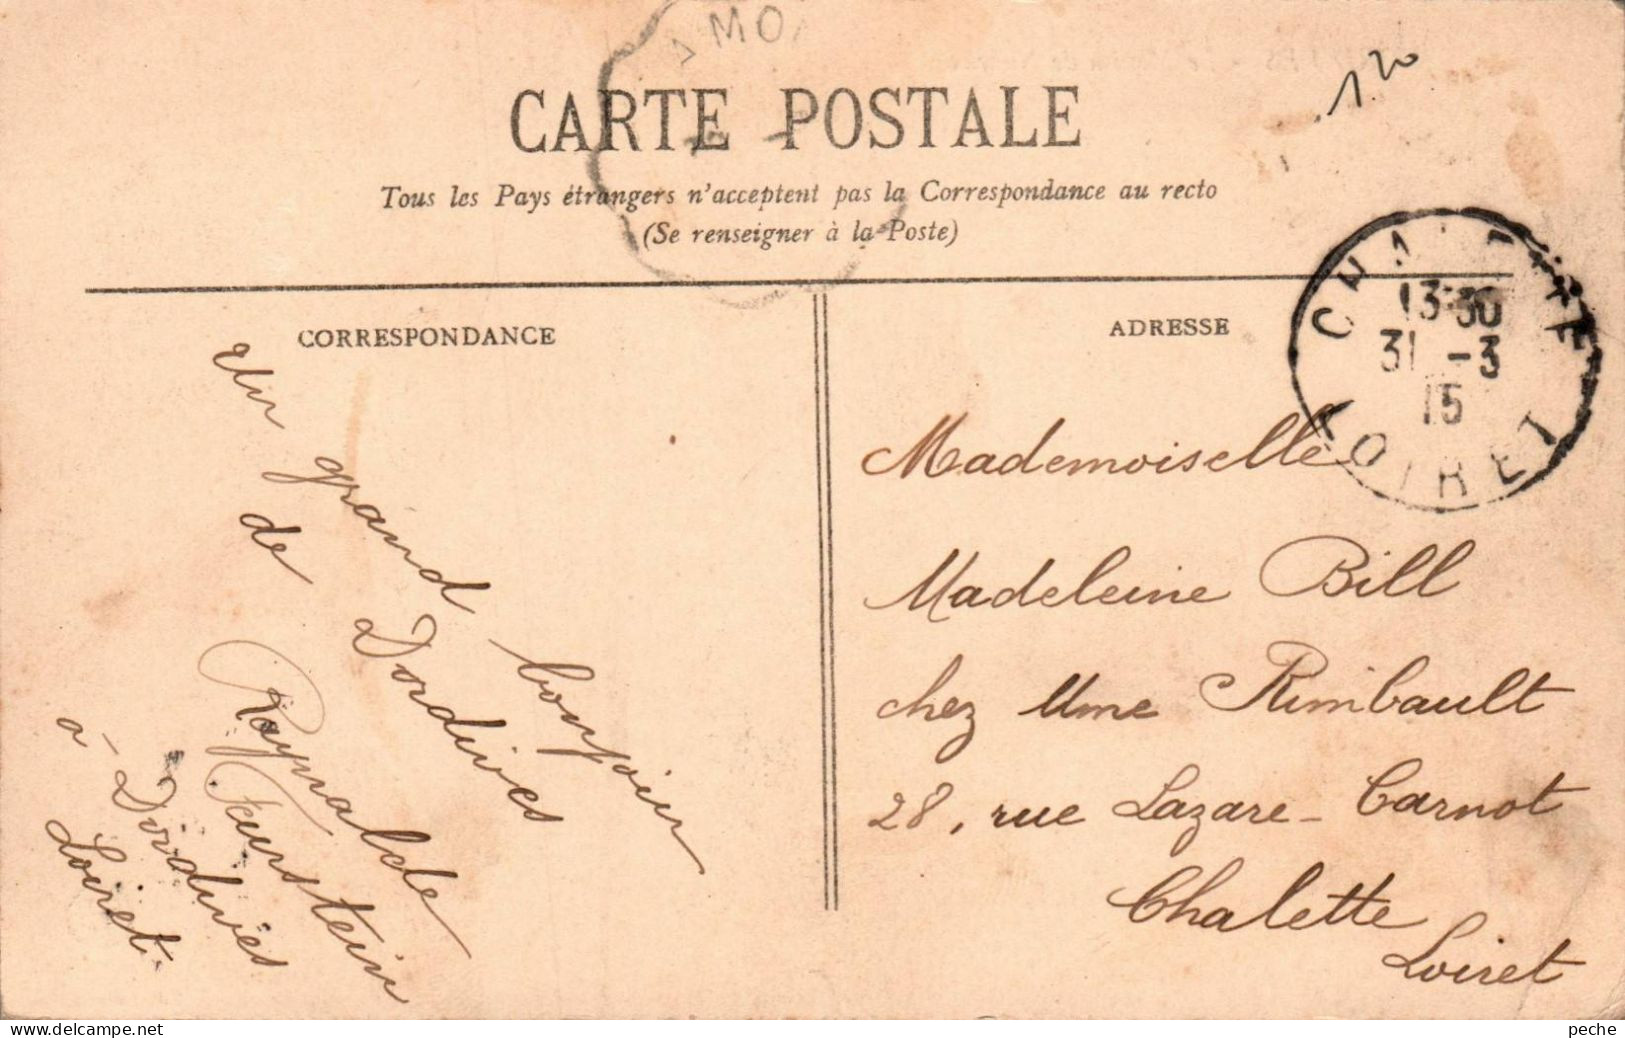 MO
CARTE POSTALE
Tous les Pays étrangers n'acceptent pas la Correspondance au recto
(Se renseigner à la Poste)
120
CORRESPONDANCE
Un grand bonjour
de Dordives
Raymalde
Feurstein
à Dordives
Loiret
ADRESSE
CHALETTE
13*30
31 -3
15
LOIRET
Mademoiselle
Madeleine Bill
chez Mme Rimbault
28, rue Lazare-Carnot
Chalette
Loiret
peche